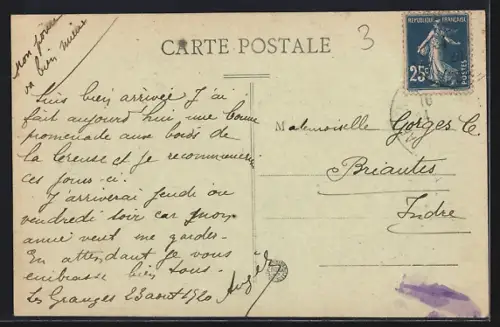 Mon pouce
va bien mieux
CARTE POSTALE
3
REPUBLIQUE FRANÇAISE
25c
POSTES
Suis bien arrivée J'ai
fait aujourd'hui une bonne
promenade aux bords de
la Creuse et je recommencerai
ces jours-ci.
J'arriverai jeudi ou
vendredi soir car mon
amie veut me garder.
En attendant je vous
embrasse bien tous.
Les Granges 23 aout 1920
Mademoiselle Gorges C.
Briantes
Indre